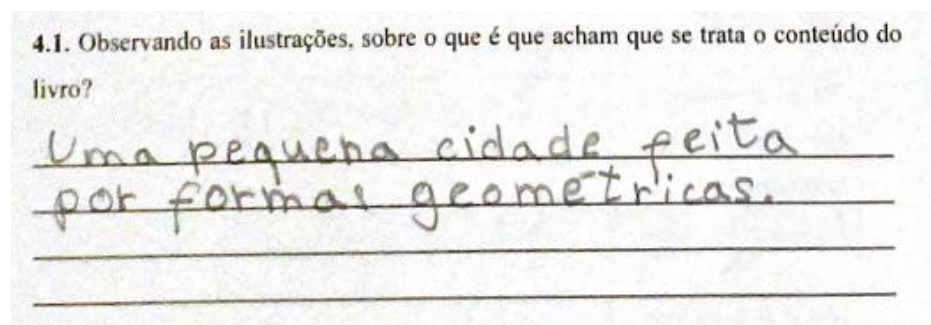 4.1. Observando as ilustrações, sobre o que é que acham que se trata o conteúdo do
livro?
Uma pequena cidade feita
por formas geométricas.